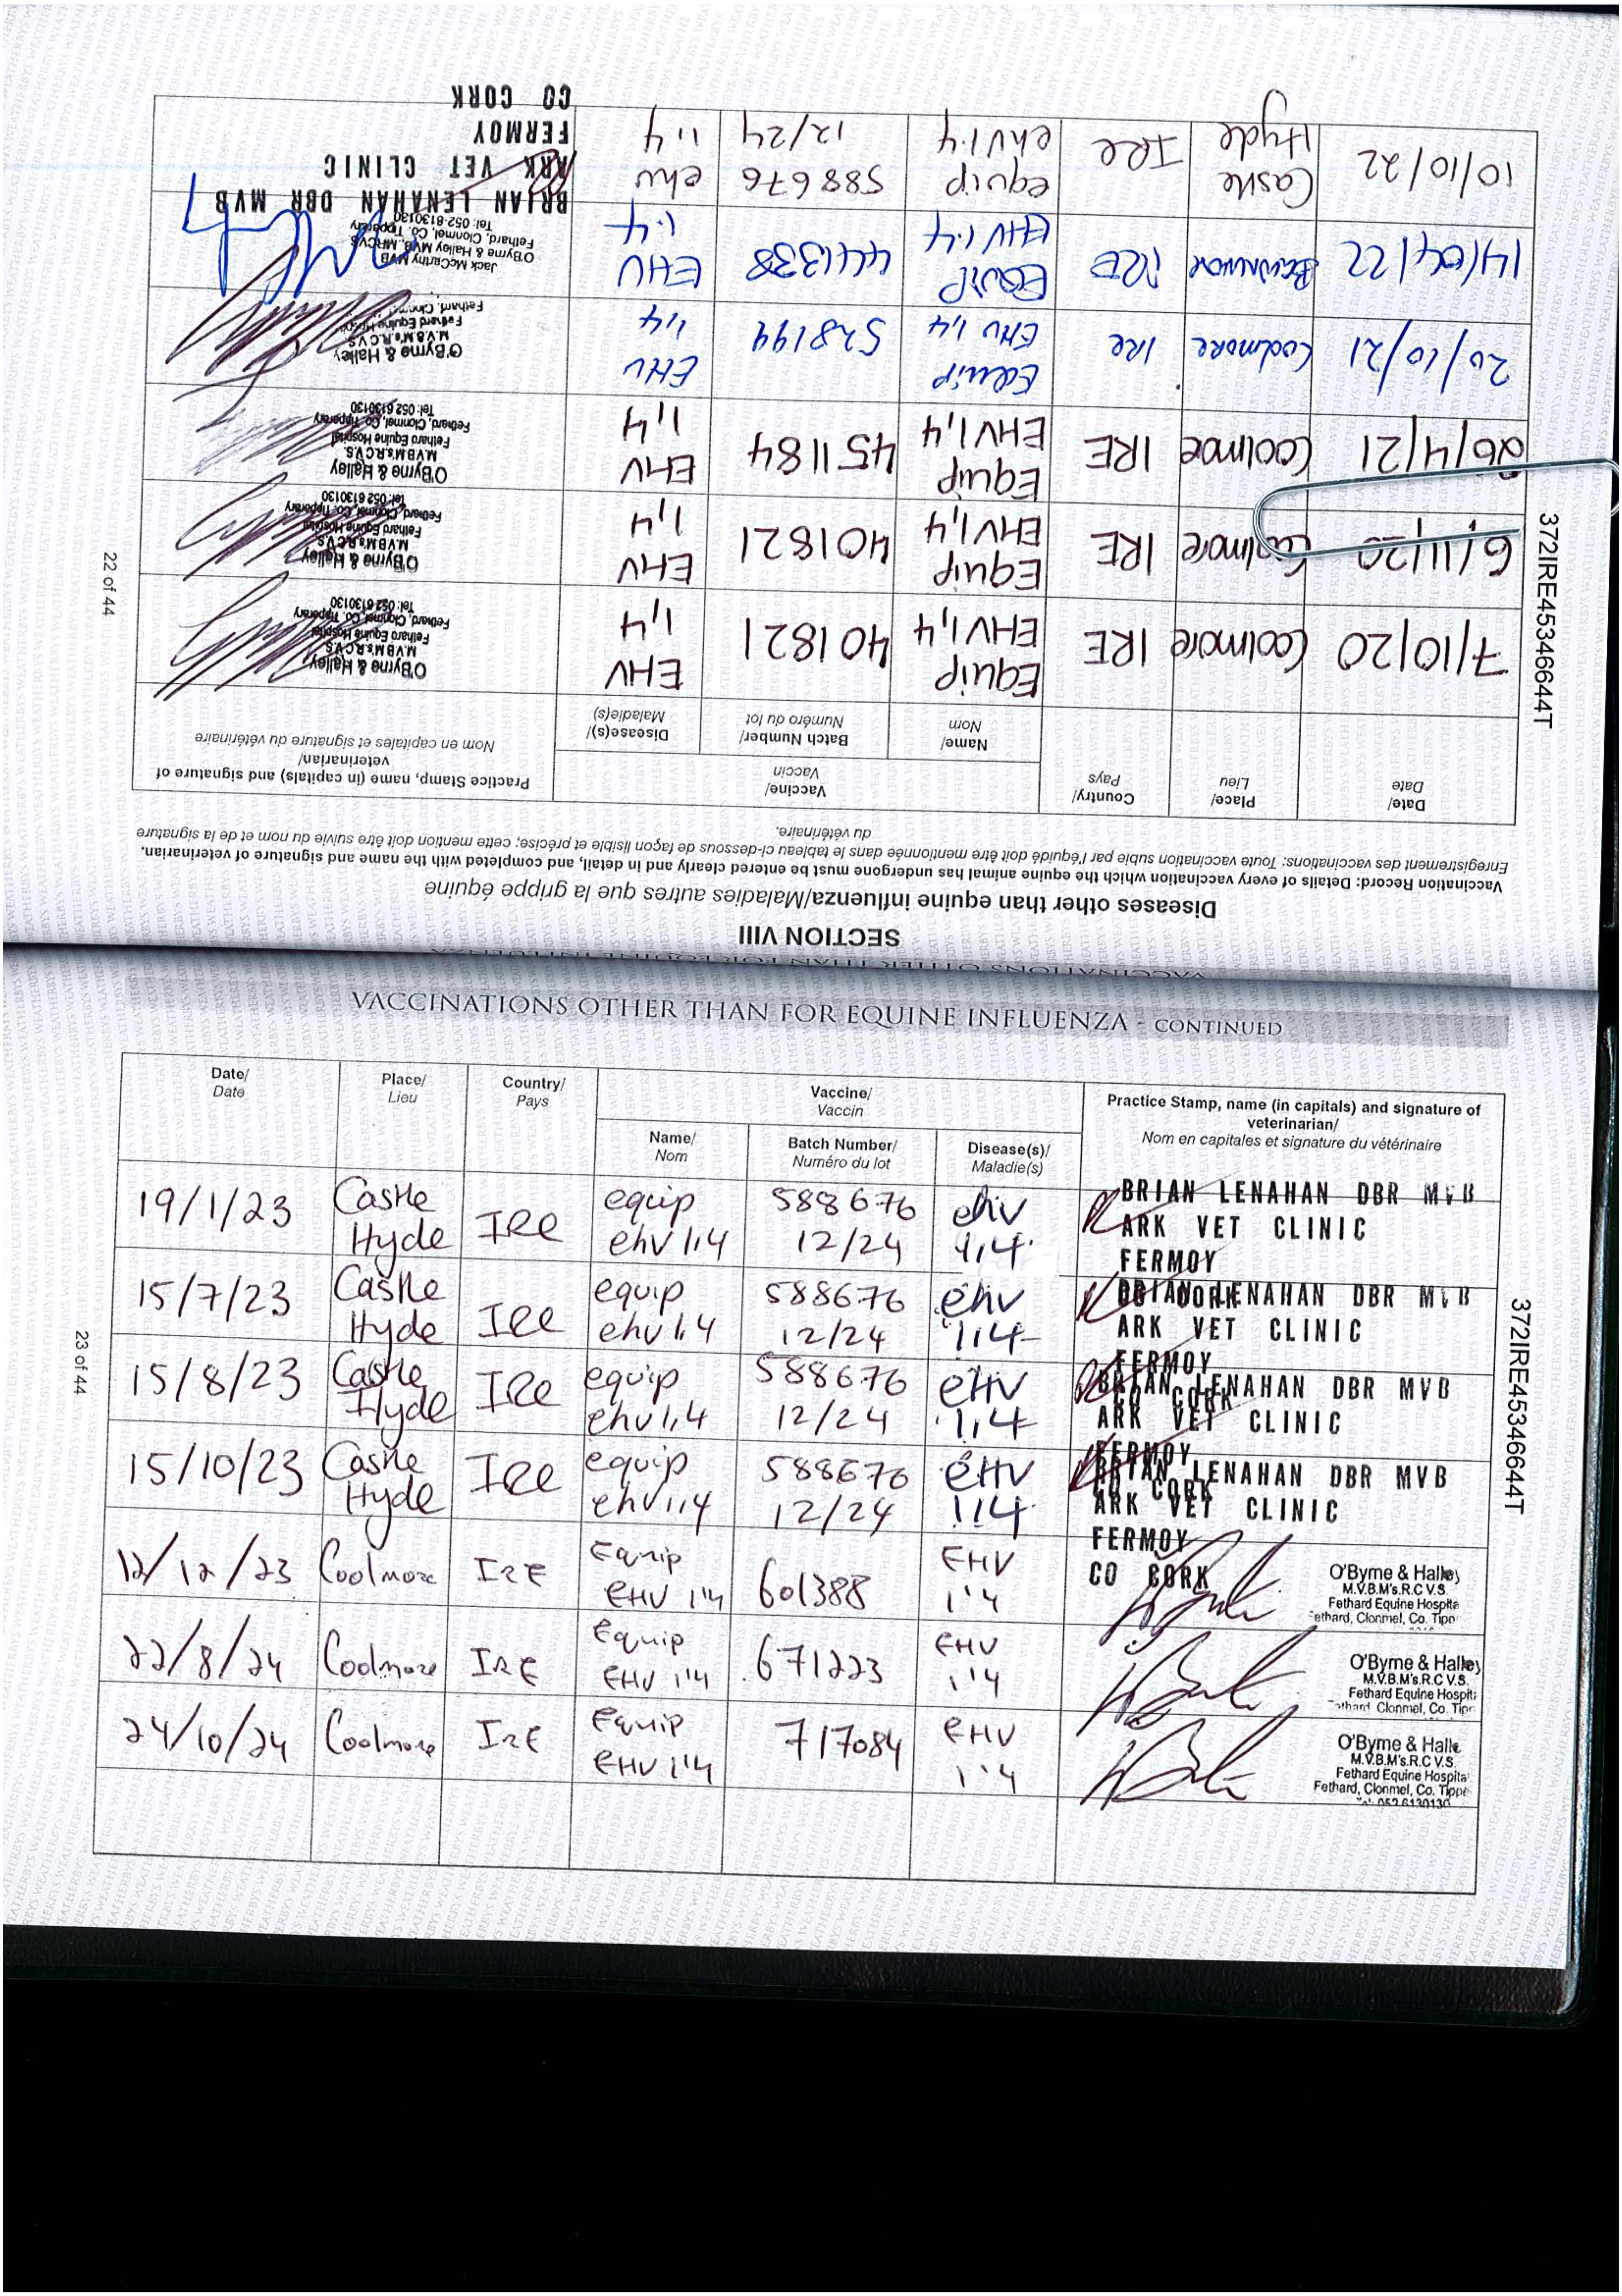 SECTION VIII
Diseases other than equine influenza/Maladies autres que la grippe équine
Vaccination Record: Details of every vaccination which the equine animal has undergone must be entered clearly and in detail, and completed with the name and signature of veterinarian.
Enregistrement des vaccinations: Toute vaccination subie par l'équidé doit être mentionnée dans le tableau ci-dessous de façon lisible et précise; cette mention doit être suivie du nom et de la signature
du vétérinaire.
Date/ Date
Place/ Lieu
Country/ Pays
Vaccine/ Vaccin
Name/ Nom
Batch Number/ Numéro du lot
Disease(s)/ Maladie(s)
Practice Stamp, name (in capitals) and signature of
veterinarian/
Nom en capitales et signature du vétérinaire
7/10/20 Coolmore IRE Equip EHV1,4 401821 EHV 1,4
O'Byrne & Halley
M.V.B.M's.R.C.V.S.
Fethard Equine Hospital
Fethard, Clonmel, Co. Tipperary
Tel: 052 6130130
6/11/20 Coolmore IRE Equip EHV1,4 401821 EHV 1,4
O'Byrne & Halley
M.V.B.M's.R.C.V.S.
Fethard Equine Hospital
Fethard, Clonmel, Co. Tipperary
Tel: 052 6130130
26/4/21 Coolmore IRE Equip EHV1,4 451184 EHV 1,4
O'Byrne & Halley
M.V.B.M's.R.C.V.S.
Fethard Equine Hospital
Fethard, Clonmel, Co. Tipperary
Tel: 052 6130130
20/10/21 Coolmore IRE Equip EHV 1,4 528194 EHV 1,4
O'Byrne & Halley
M.V.B.M's.R.C.V.S.
Fethard Equine Hospital
Fethard, Clonmel
14/04/22 EQUIP EHV 1.4 441338 EHV 1.4
Jack McCarthy MVB
O'Byrne & Halley MVB, MRCVS
Fethard, Clonmel, Co. Tipperary
Tel: 052-6130130
10/10/22 Castle Hyde IRE equip ehv1.4 588676 12/24 ehv 1.4
BRIAN LENAHAN DBR MVB
ARK VET CLINIC
FERMOY
CO CORK
372IRE45346644T
22 of 44
VACCINATIONS OTHER THAN FOR EQUINE INFLUENZA - CONTINUED
Date/ Date
Place/ Lieu
Country/ Pays
Vaccine/ Vaccin
Name/ Nom
Batch Number/ Numéro du lot
Disease(s)/ Maladie(s)
Practice Stamp, name (in capitals) and signature of
veterinarian/
Nom en capitales et signature du vétérinaire
19/1/23 Castle Hyde IRE equip ehv 1,4 588676 12/24 ehv 1,4
BRIAN LENAHAN DBR MVB
ARK VET CLINIC
FERMOY
CO CORK
15/7/23 Castle Hyde IRE equip ehv 1,4 588676 12/24 ehv 1,4
BRIAN LENAHAN DBR MVB
ARK VET CLINIC
FERMOY
CO CORK
15/8/23 Castle Hyde IRE equip ehv1,4 588676 12/24 eHV 1,4
BRIAN LENAHAN DBR MVB
ARK VET CLINIC
FERMOY
CO CORK
15/10/23 Castle Hyde IRE equip ehv1,4 588676 12/24 eHV 1,4
BRIAN LENAHAN DBR MVB
ARK VET CLINIC
FERMOY
CO CORK
12/12/23 Coolmore IRE Equip EHV 1'4 601388 EHV 1'4
O'Byrne & Halley
M.V.B.M's.R.C.V.S.
Fethard Equine Hospita
Fethard, Clonmel, Co. Tipp
22/8/24 Coolmore IRE Equip EHV 1'4 671223 EHV 1'4
O'Byrne & Halley
M.V.B.M's.R.C.V.S.
Fethard Equine Hospit
Fethard, Clonmel, Co. Tipp
24/10/24 Coolmore IRE Equip EHV 1'4 717084 EHV 1'4
O'Byrne & Halle
M.V.B.M's.R.C.V.S.
Fethard Equine Hospita
Fethard, Clonmel, Co. Tippe
Tel: 052 6130130
372IRE45346644T
23 of 44